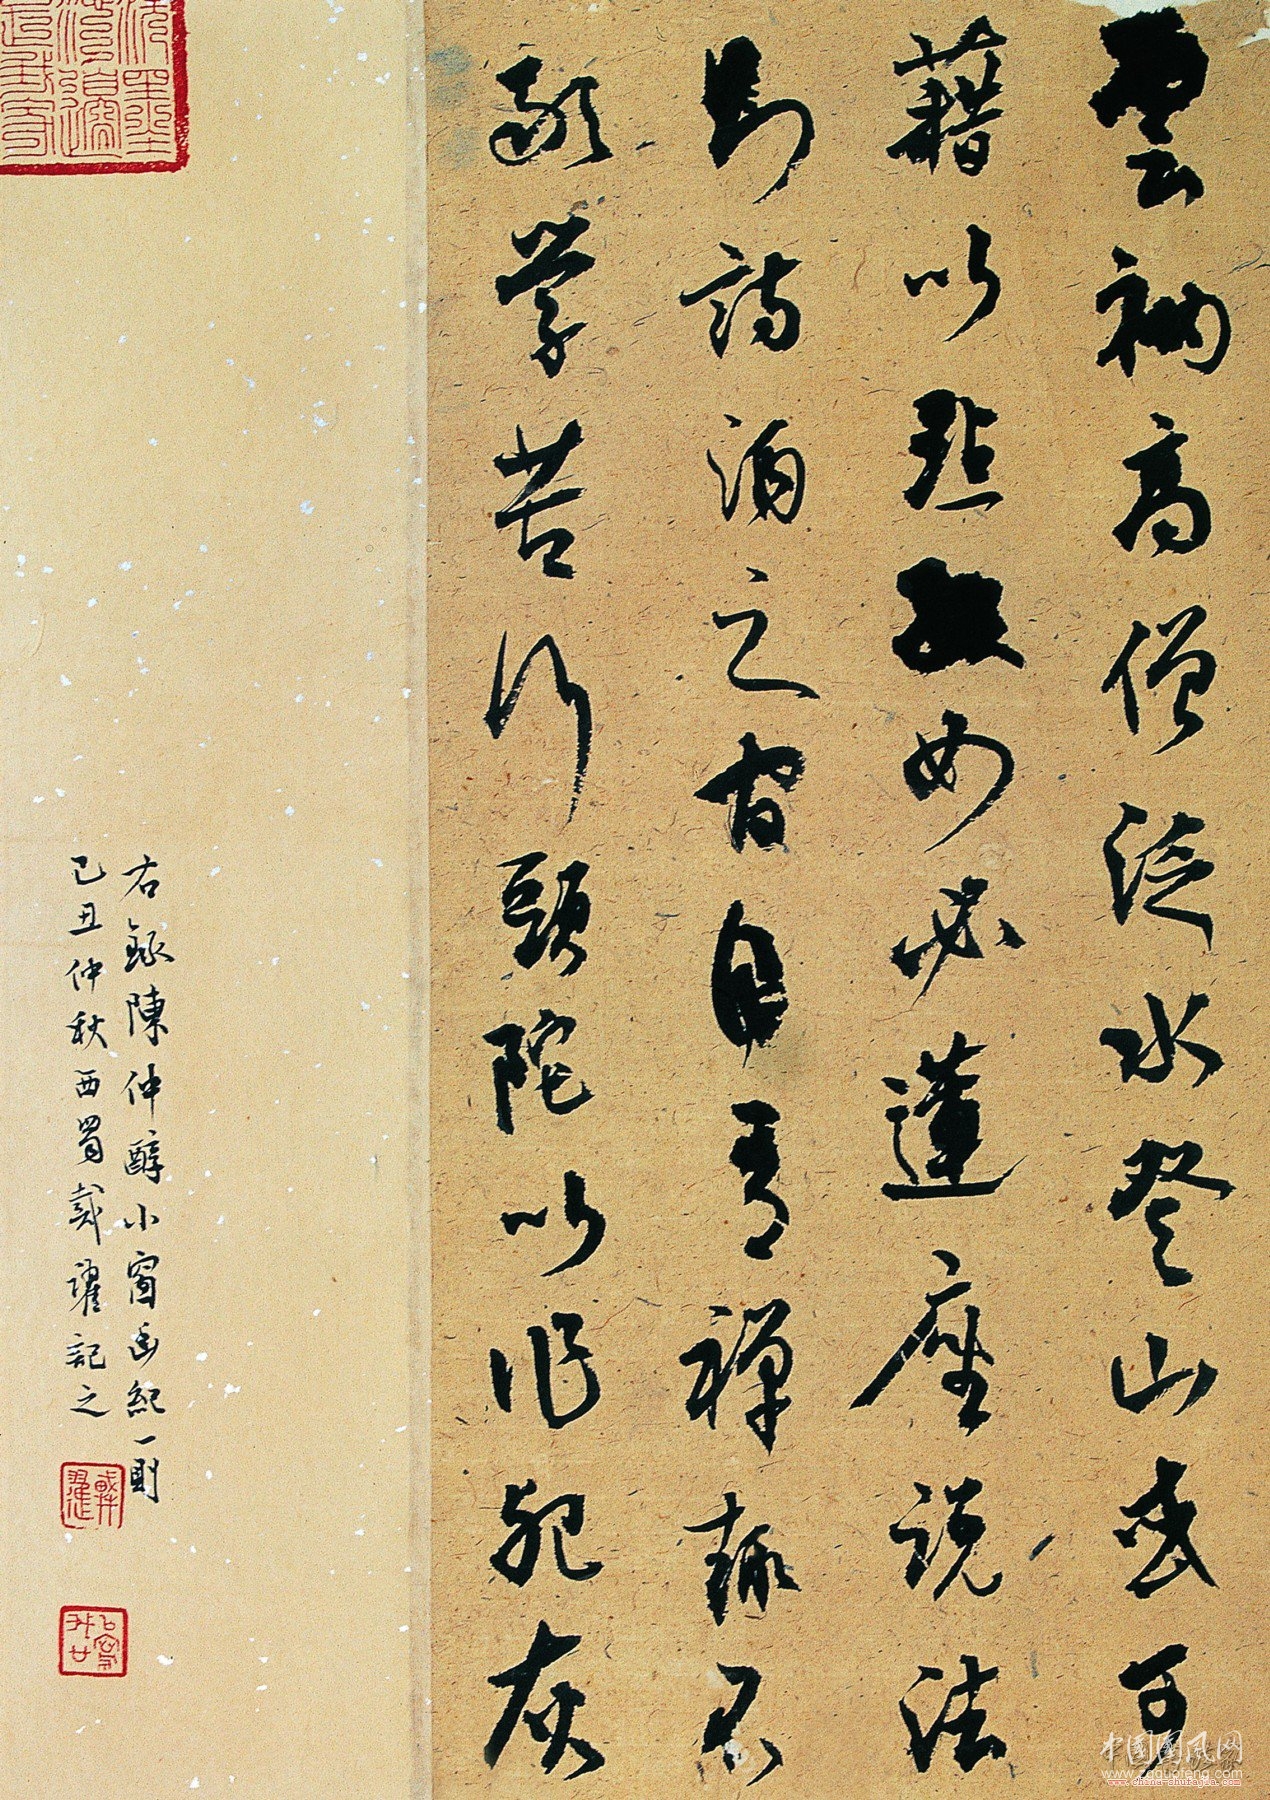 雲衲高僧泛水登山或可
藉以點綴如必蓮座說法
則詩酒之間自有禪趣不
敢學苦行頭陀以作死灰
右錄陳仲醇小窗幽紀一則
己丑仲秋西蜀戴躍記之
中国国风网
www.zgguofeng.com
www.china-shufajia.com